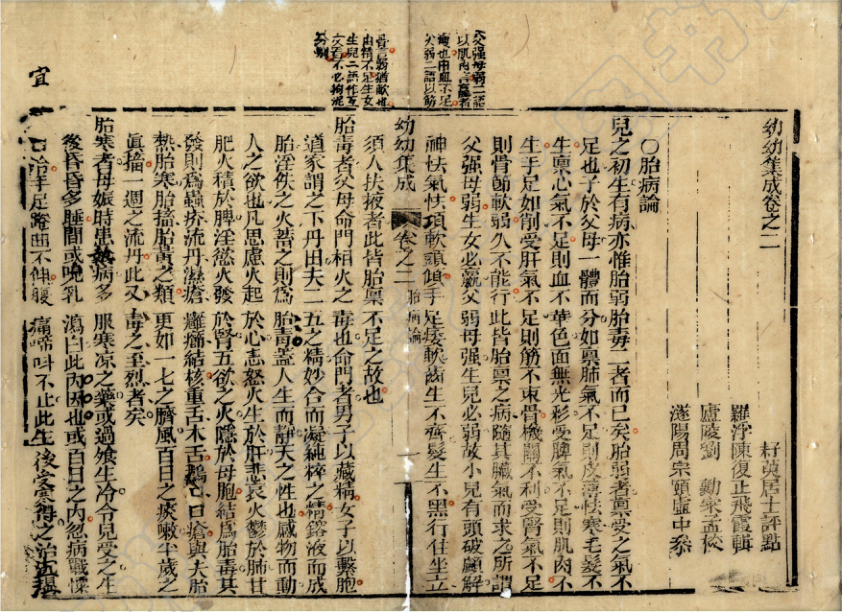 父強母弱二語
以肌肉言羸者
瘦也由血不足
父弱二語以筋
骨言弱猶軟也
由精不足生女
生兒二語作互
文看不必拘泥
分別
幼幼集成卷之二
居士評點
羅浮陳復正飛霞輯
廬陵劉勷宗孟校
遂陽周宗頤虛中參
〇胎病論
兒之初生有病亦惟胎弱胎毒二者而已矣胎弱者稟受之氣不
足也子於父母一體而分如稟肺氣不足則皮薄怯寒毛髮不
生稟心氣不足則血不華色面無光彩受脾氣不足則肌肉不
生手足如削受肝氣不足則筋不束骨機關不利受腎氣不足
則骨節軟弱久不能行此皆胎稟之病隨其臟氣而求之所謂
父强母弱生女必羸父弱母强生兒必弱故小兒有頭破顱解
神怯氣怯項軟頭傾手足痿軟齒生不齊髮生不黑行住坐立
須人扶掖者此皆胎稟不足之故也
幼幼集成
卷之二
胎病論
一
胎毒者父母命門相火之毒也命門者男子以藏精女子以繫胞
道家謂之下丹田夫二五之精妙合而凝純粹之精鎔液而成
胎淫佚之火蓄之則爲胎毒蓋人生而靜天之性也感物而動
人之欲也凡思慮火起於心志怒火生於肝悲哀火鬱於肺甘
肥火積於脾淫慾火發於腎五欲之火隱於母胞結爲胎毒其
發則爲蟲疥流丹濕瘡癰癤結核重舌木舌鵝口口瘡與夫胎
熱胎寒胎搐胎黃之類更如一七之臍風百日之痰嗽半歲之
眞搐一週之流丹此又毒之至烈者矣
胎寒者母娠時患熱病多服寒凉之藥或過飧生冷令兒受之生
後昏昏多睡間或吮乳瀉白此內因也或百日之內忽病戰慄
口冷手足踡曲不伸腹痛啼叫不止此生後受寒得之治法溫
宜